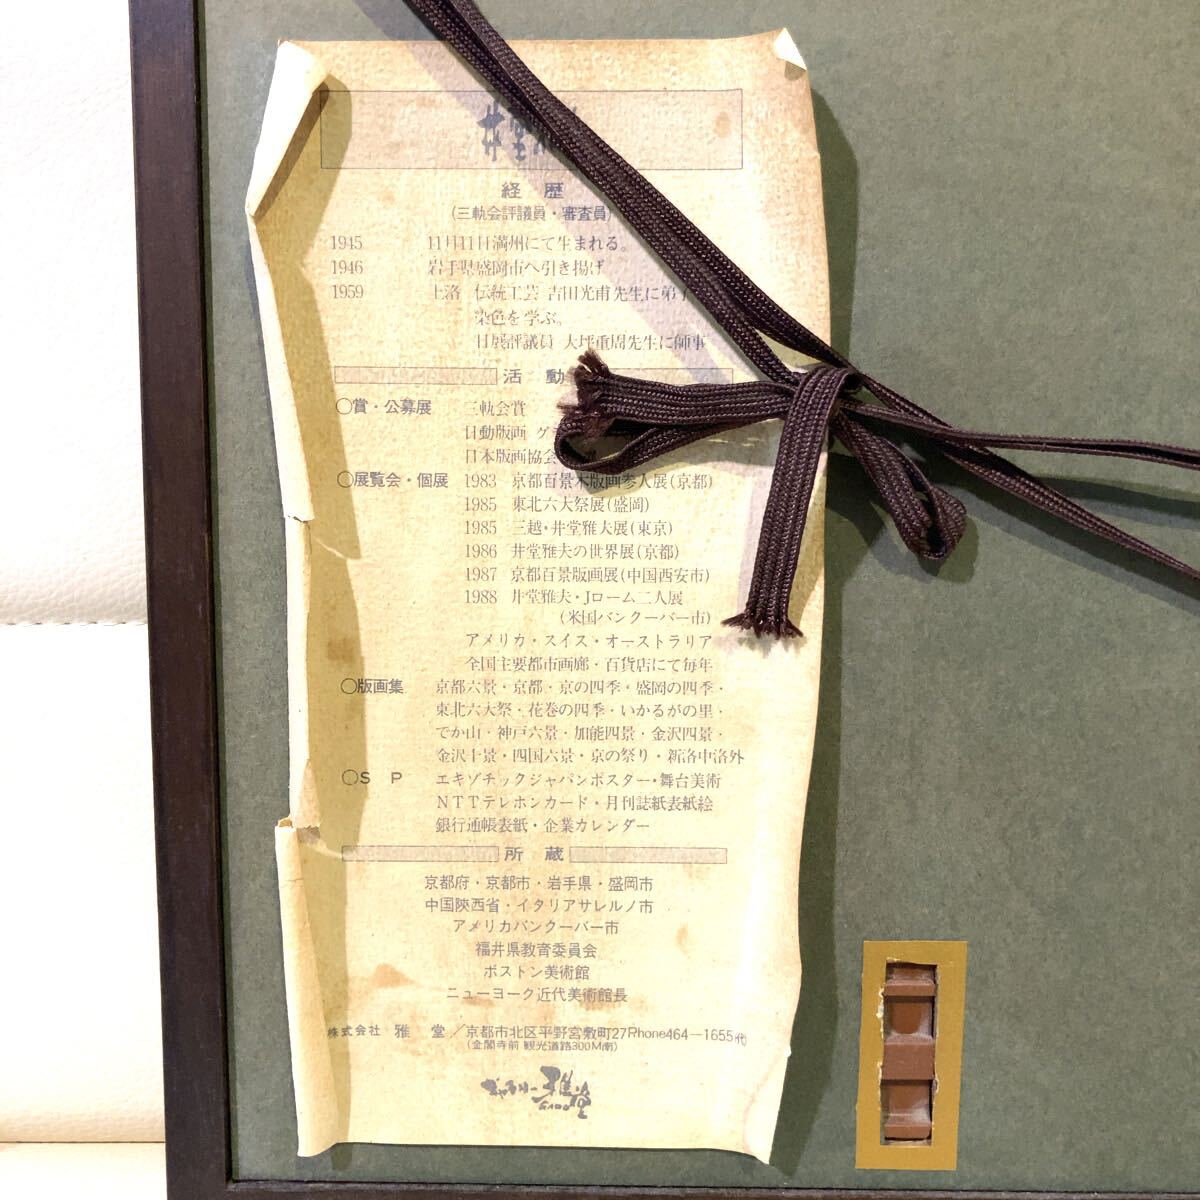 井堂
経 歴
(三軌会評議員・審査員)
1945 11月11日満州にて生まれる。
1946 岩手県盛岡市へ引き揚げ
1959 上洛 伝統工芸 吉田光甫先生に弟子
染色を学ぶ。
日展評議員 大坪重周先生に師事
活 動
○賞・公募展 三軌会賞
日動版画
日本版画協会
○展覧会・個展 1983 京都百景木版画参人展(京都)
1985 東北六大祭展(盛岡)
1985 三越・井堂雅夫展(東京)
1986 井堂雅夫の世界展(京都)
1987 京都百景版画展(中国西安市)
1988 井堂雅夫・Jローム二人展
(米国バンクーバー市)
アメリカ・スイス・オーストラリア
全国主要都市画廊・百貨店にて毎年
○版画集 京都六景・京都・京の四季・盛岡の四季・
東北六大祭・花巻の四季・いかるがの里・
でか山・神戸六景・加能四景・金沢四景・
金沢十景・四国六景・京の祭り・新洛中洛外
○S P エキゾチックジャパンポスター・舞台美術
NTTテレホンカード・月刊誌紙表紙絵
銀行通帳表紙・企業カレンダー
所 蔵
京都府・京都市・岩手県・盛岡市
中国陝西省・イタリアサレルノ市
アメリカバンクーバー市
福井県教育委員会
ボストン美術館
ニューヨーク近代美術館長
株式会社 雅 堂／京都市北区平野宮敷町27Phone464－1655代
(金閣寺前 観光道路300M南)